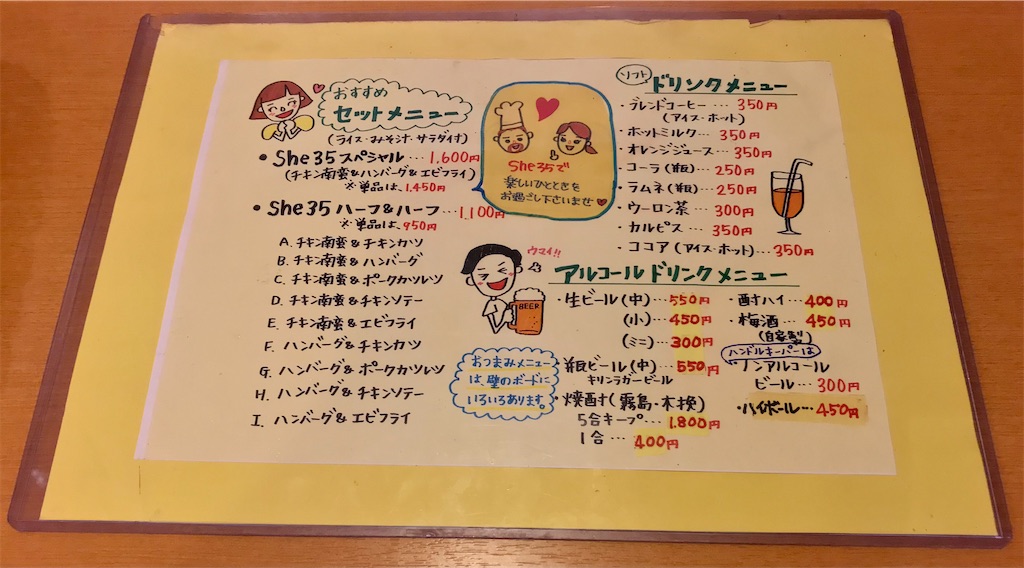 おすすめ
セットメニュー
(ライス・みそ汁・サラダ付)
• She35 スペシャル… 1,600円
(チキン南蛮&ハンバーグ&エビフライ)
※単品は、1,450円
• She35 ハーフ&ハーフ… 1,100円
※単品は、950円
A. チキン南蛮&チキンカツ
B. チキン南蛮&ハンバーグ
C. チキン南蛮&ポークカツレツ
D. チキン南蛮&チキンソテー
E. チキン南蛮&エビフライ
F. ハンバーグ&チキンカツ
G. ハンバーグ&ポークカツレツ
H. ハンバーグ&チキンソテー
I. ハンバーグ&エビフライ
She35で
楽しいひとときを
お過ごし下さいませ
ウマイ!!
BEER
おつまみメニュー
は、壁のボードに
いろいろあります。
ソフト ドリンクメニュー
・ブレンドコーヒー… 350円
(アイス・ホット)
・ホットミルク… 350円
・オレンジジュース… 350円
・コーラ(瓶)… 250円
・ラムネ(瓶)… 250円
・ウーロン茶… 300円
・カルピス… 350円
・ココア(アイス・ホット)… 350円
アルコールドリンクメニュー
・生ビール(中)… 550円
(小)… 450円
(ミニ)… 300円
・瓶ビール(中)… 550円
キリンラガービール
・焼酎(霧島・木挽)
5合キープ… 1,800円
1合… 400円
・酎ハイ… 400円
・梅酒… 450円
(自家製)
ハンドルキーパーは
ノンアルコール
ビール… 300円
・ハイボール… 450円